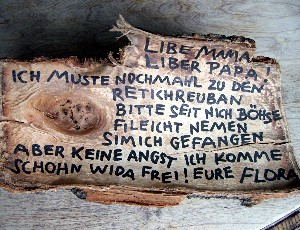 LIBE MAMA
LIBER PAPA!
ICH MUSTE NOCHMAHL ZU DEN
RETICHREUBAN
BITTE SEIT NICH BÖHSE
FILEICHT NEMEN
SIMICH GEFANGEN
ABER KEINE ANGST ICH KOMME
SCHOHN WIDA FREI! EURE FLORA